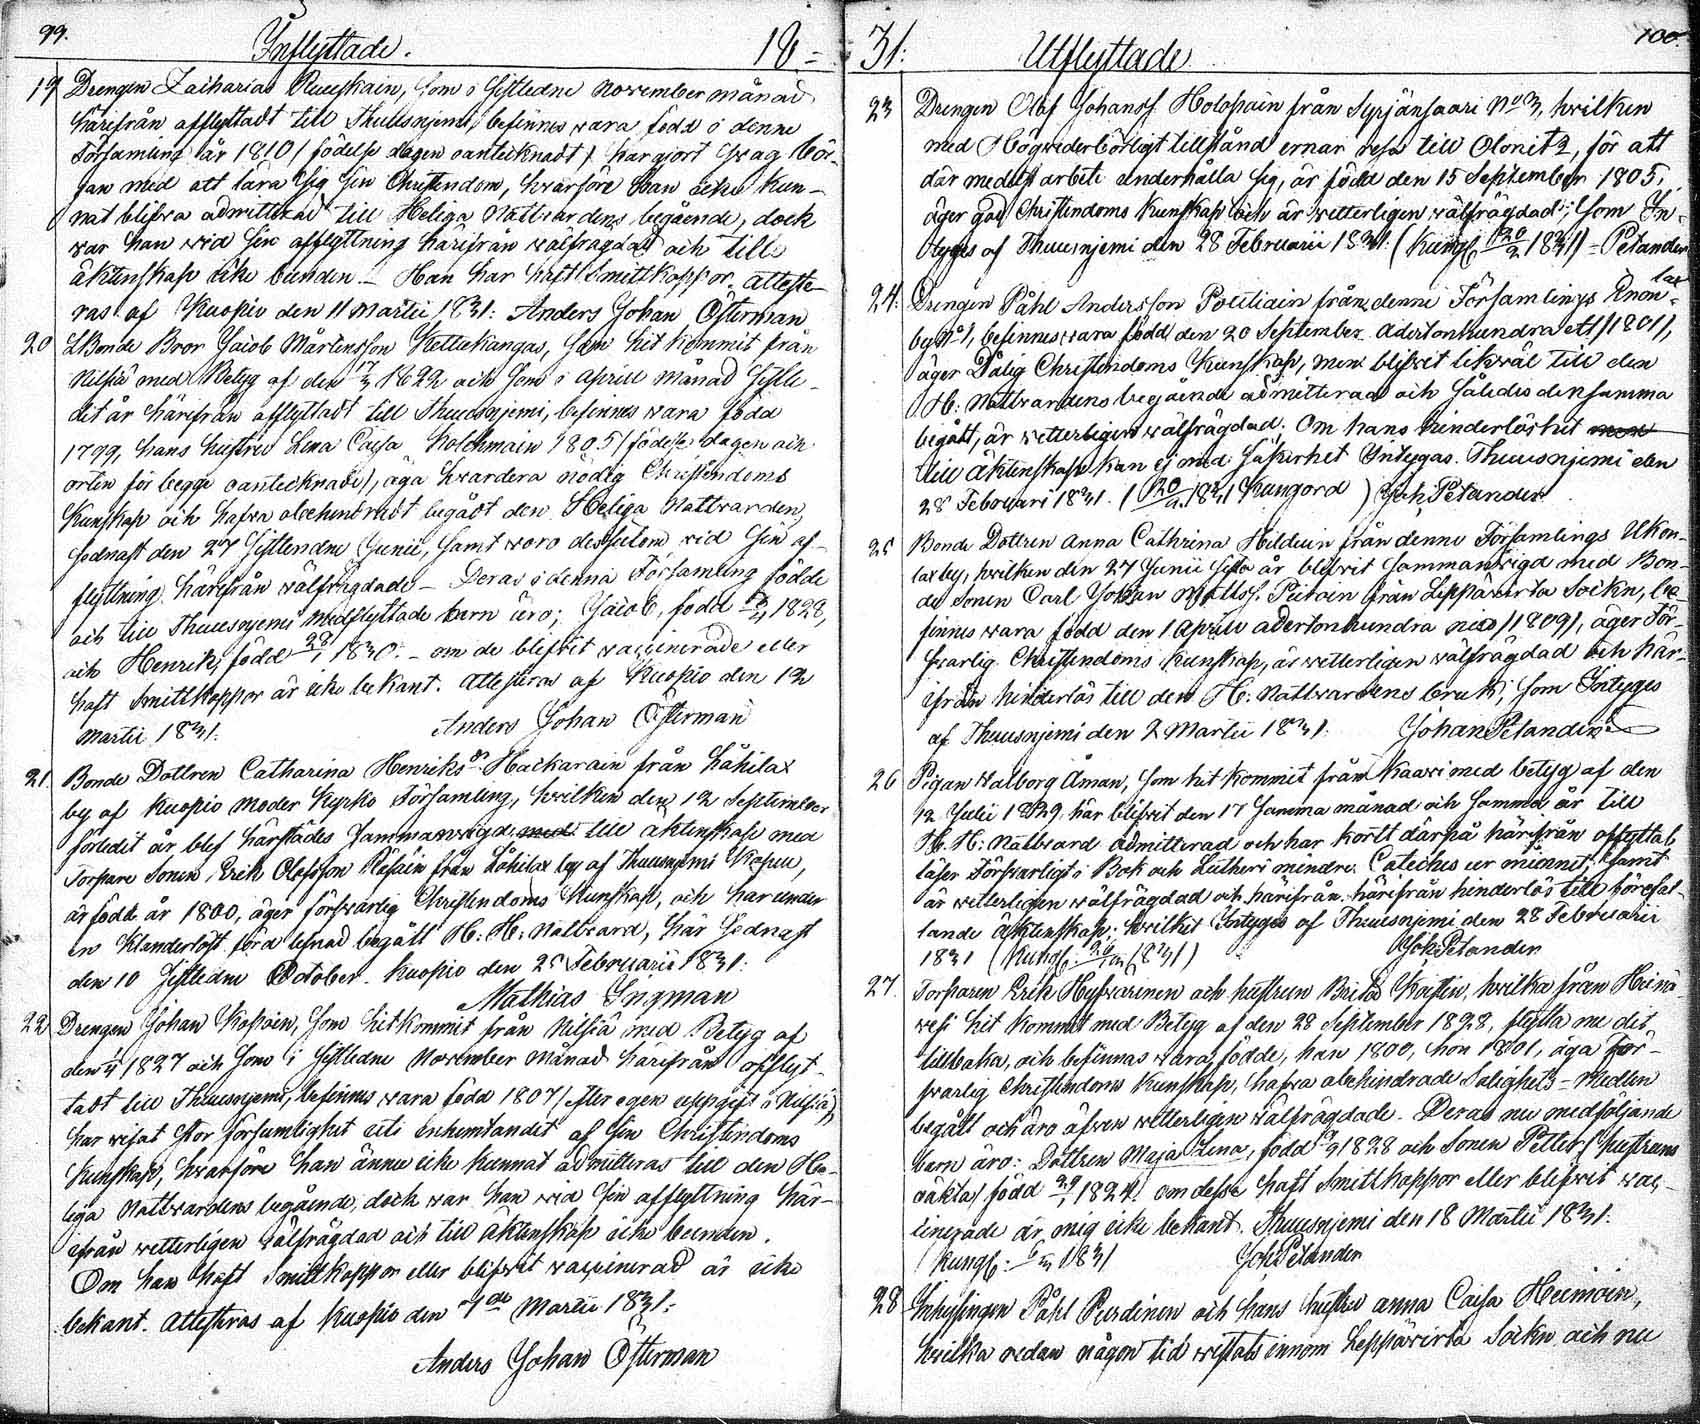 99.
Inflyttade.
18=
19 Drengen Zacharias Ruuskain, som i sistledne November månad
härifrån afflyttadt till Thuusnjemi, befinnes vara född i denne
Församling år 1810 / födelse dagen oantecknadt / har gjort svag bör-
jan med att lära sig sin Christendom, hvarföre han icke kun-
nat blifva admitterad till Heliga Nattvardens begående, dock
var han vid sin afflyttning härifrån välfrägdad och till
äktenskap icke bunden. – Han har haft Smittkoppor. Atteste-
ras af Kuopio den 11 Martii 1831: Anders Johan Österman
20 Bonde Bror Jacob Mårtensson Kettukangas, som hit kommit från
Nilsiä med Betyg af den 1822 och som i April månad sistle-
det år härifrån afflyttadt till Thuusnjemi, befinnes vara född
1799, hans hustru Lena Caisa Holckmain 1805 / födelse dagen och
orten för begge oantecknade /, äga hvardera nödig Christendoms
Kunskap och hafva obehindradt begådt den Heliga Nattvarden,
sednast den 27 sistlendne Junii, samt voro dessutom vid sin af-
flyttning härifrån välfrägdade – Deras i denna Församling födde
och till Thuusnjemi medflyttade barn äro; Jacob, född 1828,
och Henrik, född 1830. – om de blifvit vaccinerade eller
haft Smittkoppor är icke bekant. Attesteras af Kuopio den 12
Martii 1831. Anders Johan Österman
21. Bonde Dottren Catharina Henriksdr Hackarain från Låhilax
by af Kuopio Moder Kyrko Församling, hvilken den 12 September
förledit år blef härstädes sammanvigd med till äktenskap med
Torpare Sonen Erik Olofsson Räsäin från Låhilax by af Thuusnjemi Kapell,
är född år 1800, äger försvarlig Christendoms Kunskap, och har under
en klanderlöst förd lefnad begått H: H: Nattvard, här sednast
den 10 sistledne October. Kuopio den 25 Februarii 1831:
Mathias Ingman
22 Drengen Johan Kopoin, som hit kommit från Nilsiä med Betyg af
den 1827 och som i sistledne November månad härifrån afflyt-
tadt till Thuusnjemi, befinnes vara född 1807 / efter egen uppgift i Nilsiä /,
har visat stor försumlighet uti inhemtandet af sin Christendoms
Kunskap, hvarföre han ännu icke kunnat admitteras till den He-
liga Nattvardens begående, dock var han vid sin afflyttning här-
ifrån vetterligen välfrägdad och till äktenskap icke bunden.
Om han haft Smittkoppor eller blifvit vaccinerad är icke
bekant. Attesteras af Kuopio den 7de Martii 1831:
Anders Johan Österman
31:
Utflyttade
100.
23 Drengen Olof Johanss. Holopain från Syrjänsaari No 3, hvilken
med Högvederbörligt tillstånd ernar resa till Olonitz, för att
där medelst arbete underhålla sig, är född den 15 September 1805,
äger god Christendoms Kunskap och är vetterligen välfrägdad; som In-
tyges af Thuusnjemi den 28 Februarii 1831. (Kungj. 20/2 1831) – Petander
24: Drengen Påhl Andersson Poutiain från denne Församlings Enon-
lax
by No 1, befinnes vara född den 20 September adertonhundra ett / 1801 /,
äger Dålig Christendoms Kunskap, men blifvit likväl till den
H: Nattvardens begående admitterad och således densamma
begått, är vetterligen välfrägdad. Om hans hinderlöshet
till äktenskap kan ej med säkerhet Intygas. Thuusnjemi den
28 Februari 1831. (20/2 1831 Kungord) Joh: Petander
25 Bonde Dottren Anna Cathrina Hilduin från denne Församlings Ukon-
lax by, hvilken den 27 Junii sista år blifvit sammanvigd med Bon-
de Sonen Carl Johan Matss. Pitkäin från Leppävirta Sockn, be-
finnes vara född den 1 April adertonhundra nio / 1809 /, äger För-
svarlig Christendoms Kunskap, är vetterligen välfrägdad och här-
ifrån hinderlös till den H: Nattvardens bruk; som Intyges
af Thuusnjemi den 2 Martii 1831. Johan Petander
26 Pigan Valborg Åman, som hit kommit från Kaavi med betyg af den
12 Julii 1829, har blifvit den 17 samma månad och samma år till
H. H: Nattvard admitterad och har kort därpå härifrån afflyttat,
läser Försvarligt i Bok och Lutheri mindre Cateches ur minnet, samt
är vetterligen välfrägdad och härifrån härifrån hinderlös till förefal-
lande äktenskap: hvilket Intyges af Thuusnjemi den 28 Februarii
1831 (Kungj. 1831) Joh: Petander
27. Torparen Erik Hyfvärinen och hustrun Brita Koistin, hvilka från Heinä-
vesi hit kommit med Betyg af den 28 September 1828, flytta nu dit
tillbaka, och befinnas vara födde, han 1800, hon 1801, äga för-
svarlig Christendoms Kunskap, hafva obehindrade Salighets-Medlen
begått och äro äfven vetterligen välfrägdade. Deras nu medföljande
barn äro: Dottren Maja Lena, född 1828 och Sonen Petter (hustruns
oäkta) född 1824. om desse haft Smittkoppor eller blifvit vac-
cinerade är mig icke bekant. Thuusnjemi den 18 Martii 1831:
Kungj: 1831 Joh: Petander
28 Inhysingen Påhl Purdinen och hans hustru Anna Caisa Heimoin,
hvilka redan någon tid vistats innom Leppävirta Sockn och nu